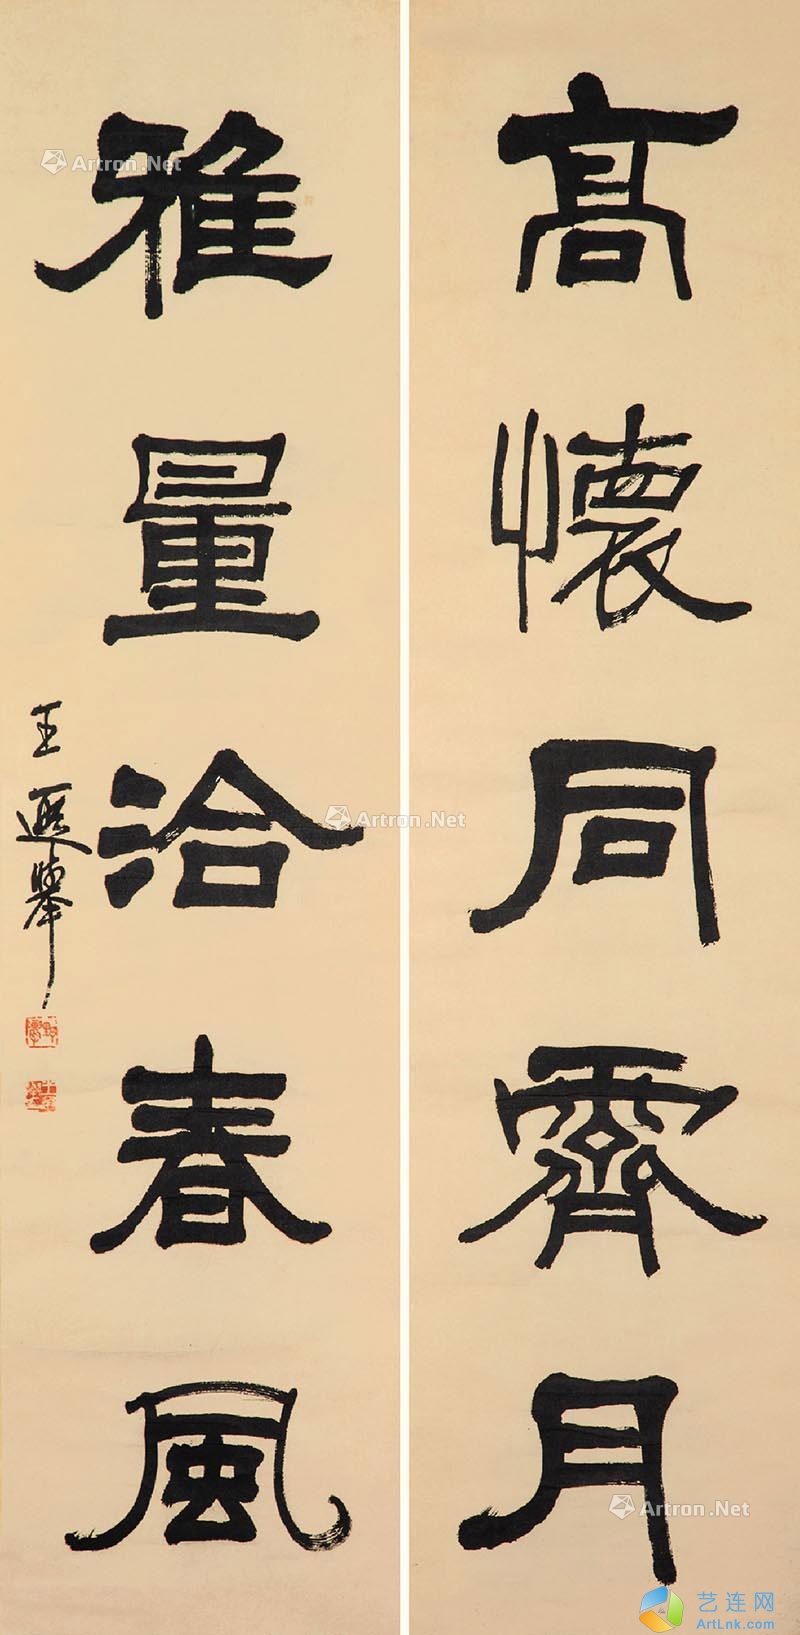 高懷同霽月
雅量洽春風
王遐舉
Artron.Net
Artron.Net
Artron.Net
艺连网
ArtLnk.com